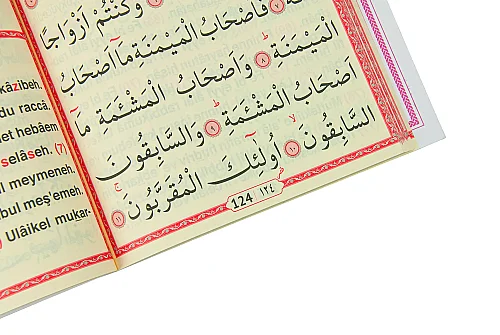 وَكُنْتُمْ اَزْوَاجًا
٧ فَاَصْحَابُ الْمَيْمَنَةِ مَٓا اَصْحَابُ
الْمَيْمَنَةِ ٨ وَاَصْحَابُ الْمَشْـَٔمَةِ مَٓا
اَصْحَابُ الْمَشْـَٔمَةِ ٩ وَالسَّابِقُونَ
السَّابِقُونَ ١٠ اُو۬لٰٓئِكَ الْمُقَرَّبُونَ ١١
124 ١٢٤
kâzibeh.
du raccâ.
et hebâem
selâseh. (7)
l meymeneh.
bul meş'emeh.
) Ulâikel mukar-